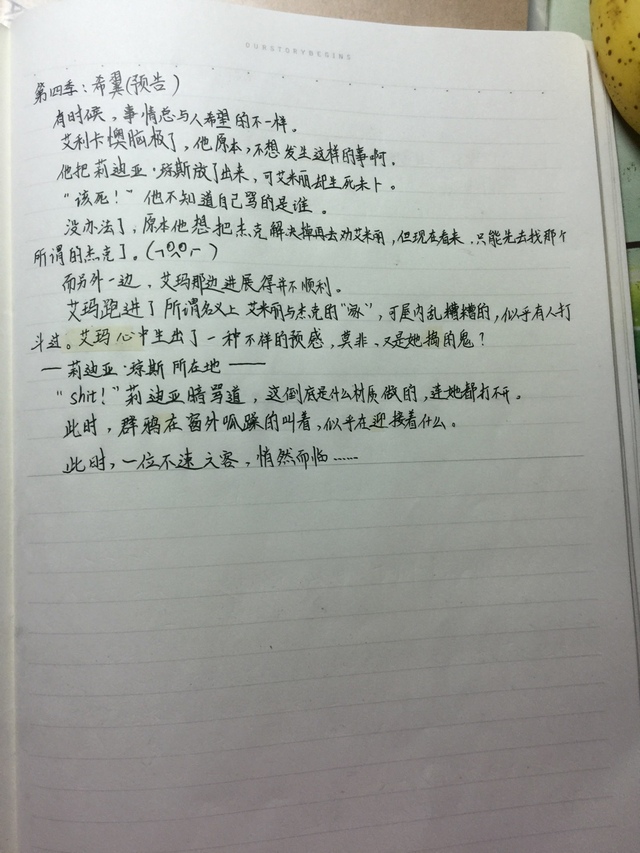 OURSTORYBEGINS
第四季：希翼(预告)
有时候，事情总与人希望的不一样。
艾利卡懊脑极了，他原本，不想发生这样的事啊。
他把莉迪亚·琼斯放了出来，可艾米丽却生死未卜。
“该死！”他不知道自己骂的是谁。
没办法了，原本他想把杰克解决掉再去劝艾米丽，但现在看来，只能先去找那个
所谓的杰克了。
而另外一边，艾玛那边进展得并不顺利。
艾玛跑进了所谓名义上艾米丽与杰克的“家”，可屋内乱糟糟的，似乎有人打
斗过。艾玛心中生出了一种不祥的预感，莫非，又是她搞的鬼？
— 莉迪亚·琼斯 所在地 ——
“shit！”莉迪亚暗骂道，这倒底是什么材质做的，连她都打不开。
此时，群鸦在窗外呱躁的叫着，似乎在迎接着什么。
此时，一位不速之客，悄然而临……